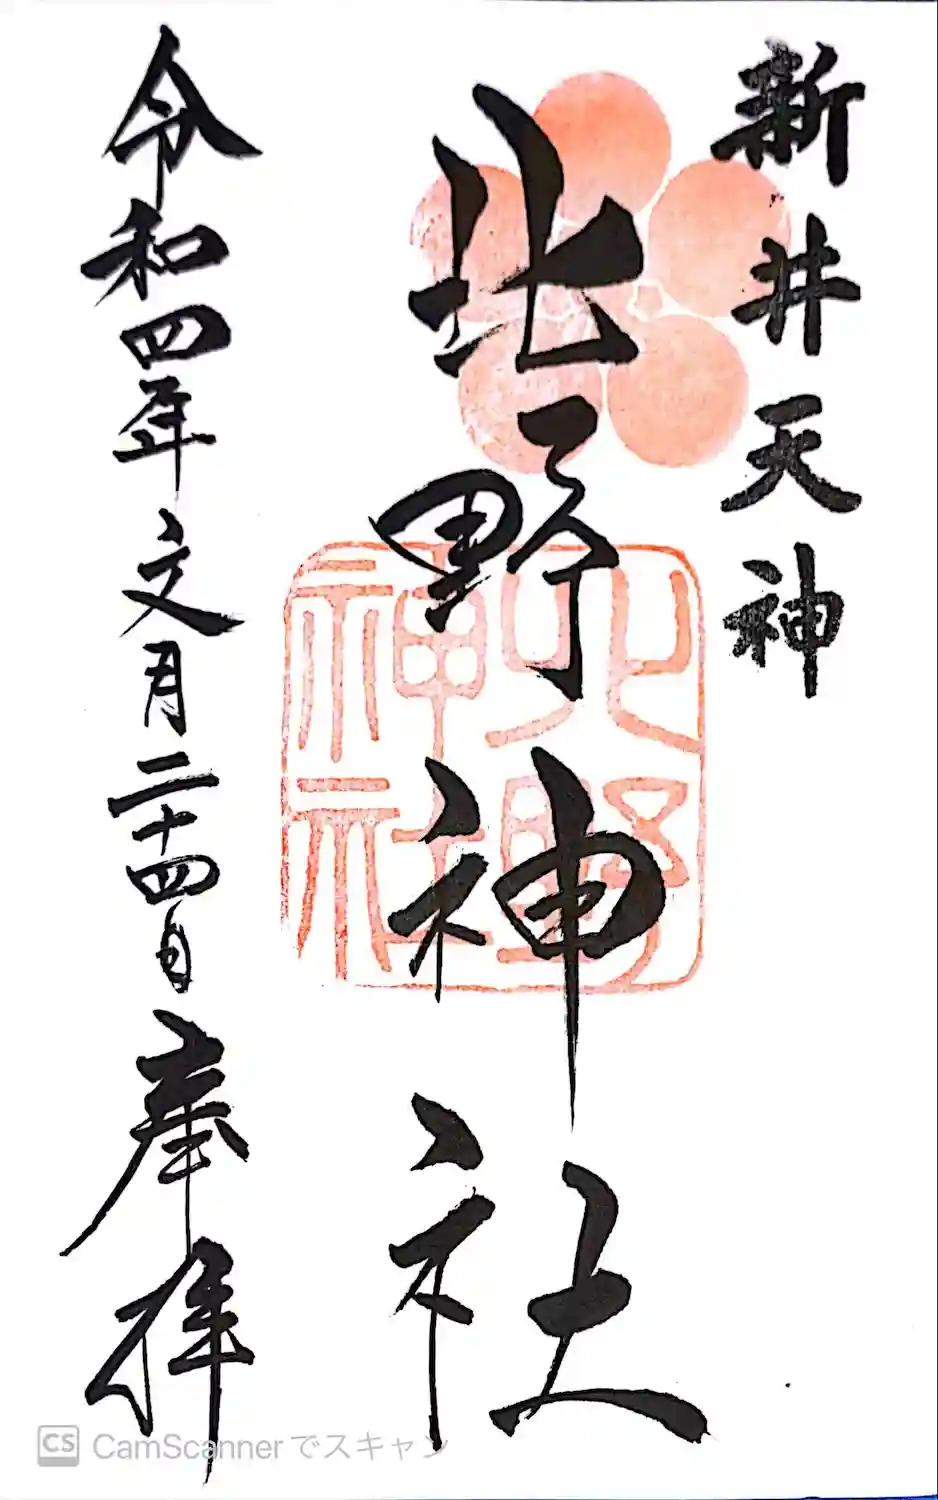 新井天神
北野神社
令和四年文月二十四日奉拝
北野神社
CS CamScannerでスキャン